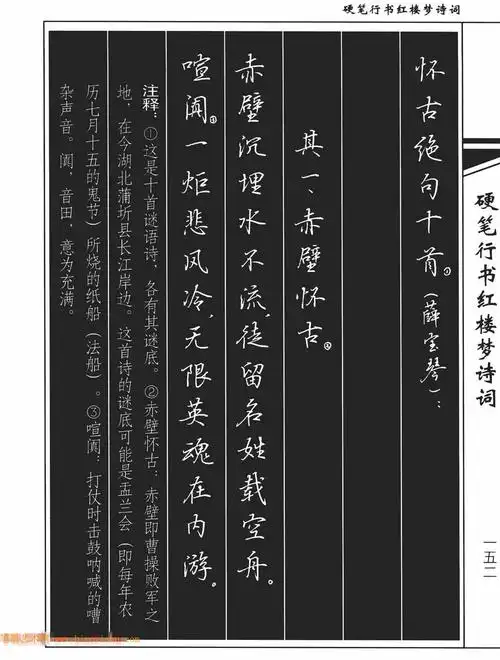 硬笔行书红楼梦诗词
硬笔行书红楼梦诗词
一五二
怀古绝句十首①（薛宝琴）：
其一、赤壁怀古②
赤壁沉埋水不流，徒留名姓载空舟。
喧阗③一炬悲风冷，无限英魂在内游。
注释：①这是十首谜语诗，各有其谜底。②赤壁怀古：赤壁即曹操败军之
地，在今湖北蒲圻县长江岸边。这首诗的谜底可能是盂兰会（即每年农
历七月十五的鬼节）所烧的纸船（法船）。③喧阗：打仗时击鼓呐喊的嘈
杂声音。阗，音田，意为充满。